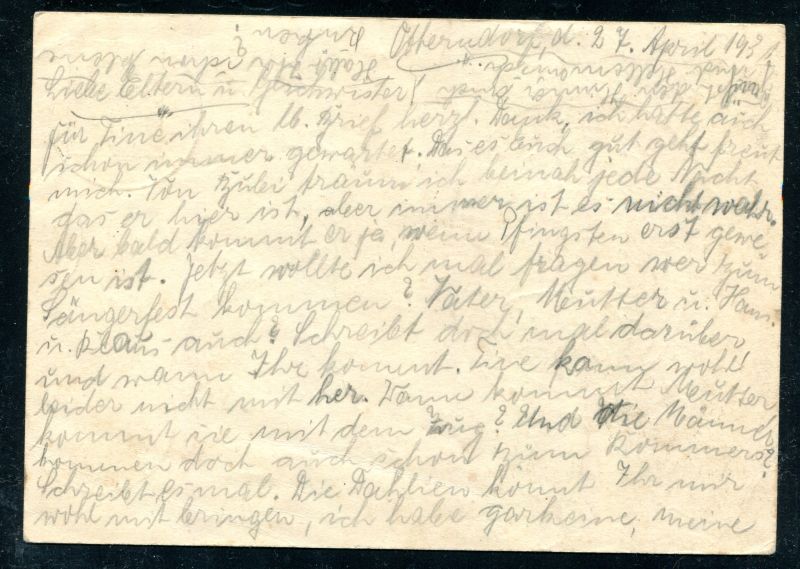 Otterndorf, d. 27. April 193
Liebe Eltern u. Geschwister!
für Tine ihren lb. Brief herzl. Dank, ich hatte auch
schon immer gewartet. Das es Euch gut geht freut
mich. Von träum ich beinah jede Nacht
das er hier ist, aber immer ist es nicht wahr.
Aber bald kommt er ja, wenn Pfingsten erst gewe
sen ist. Jetzt wollte ich mal fragen wer zum
Sängerfest kommen? Vater, Mutter u. Hans.
u. Klaus auch? Schreibt doch mal darüber
und wann Ihr kommt. Tine kann wohl
leider nicht mit her. Wann kommt Mutter
kommt sie mit dem Zug? Und die Männer
kommen doch auch schon zum Kommers?
Schreibt es mal. Die Dahlien könnt Ihr mir
wohl mit bringen, ich habe garkeine, meine